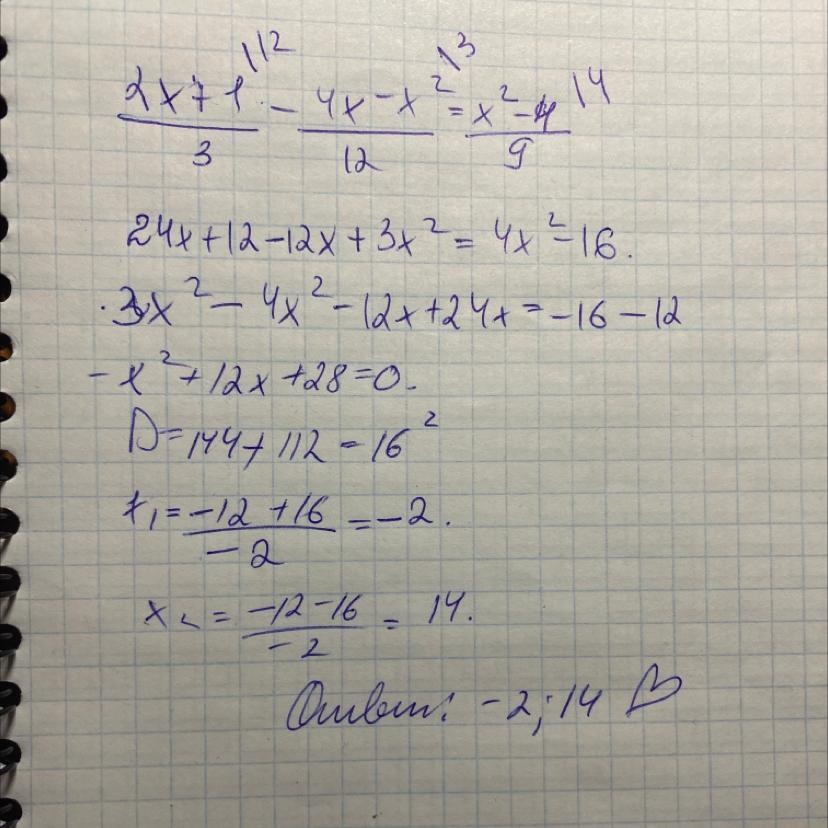 \12 \3
2x+1 - 4x-x² = x²-4 \4
3 12 9
24x+12-12x+3x² = 4x²-16.
3x² - 4x² - 12x+24x = -16-12
-x²+12x+28=0.
D=144+112=16²
x₁ = -12+16 = -2.
-2
x₂ = -12-16 = 14.
-2
Ответ: -2; 14